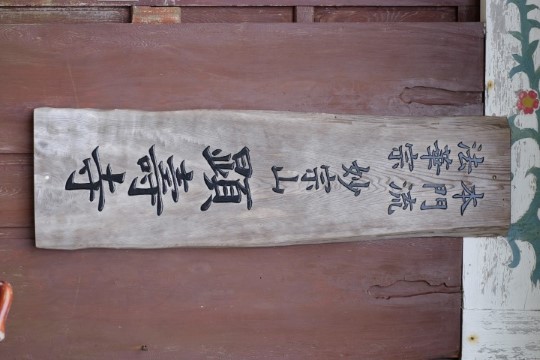 法華宗
本門流
妙宗山
顕壽寺